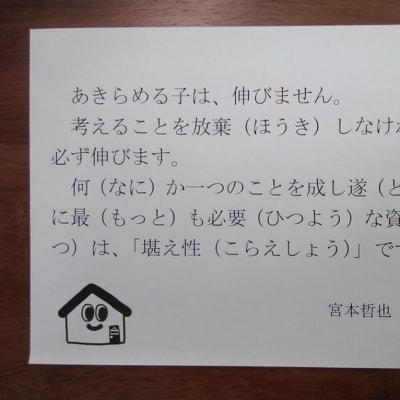 あきらめる子は、伸びません。
考えることを放棄（ほうき）しなけ
必ず伸びます。
何（なに）か一つのことを成し遂（と
に最（もっと）も必要（ひつよう）な資
つ）は、「堪え性（こらえしょう）」で
宮本哲也